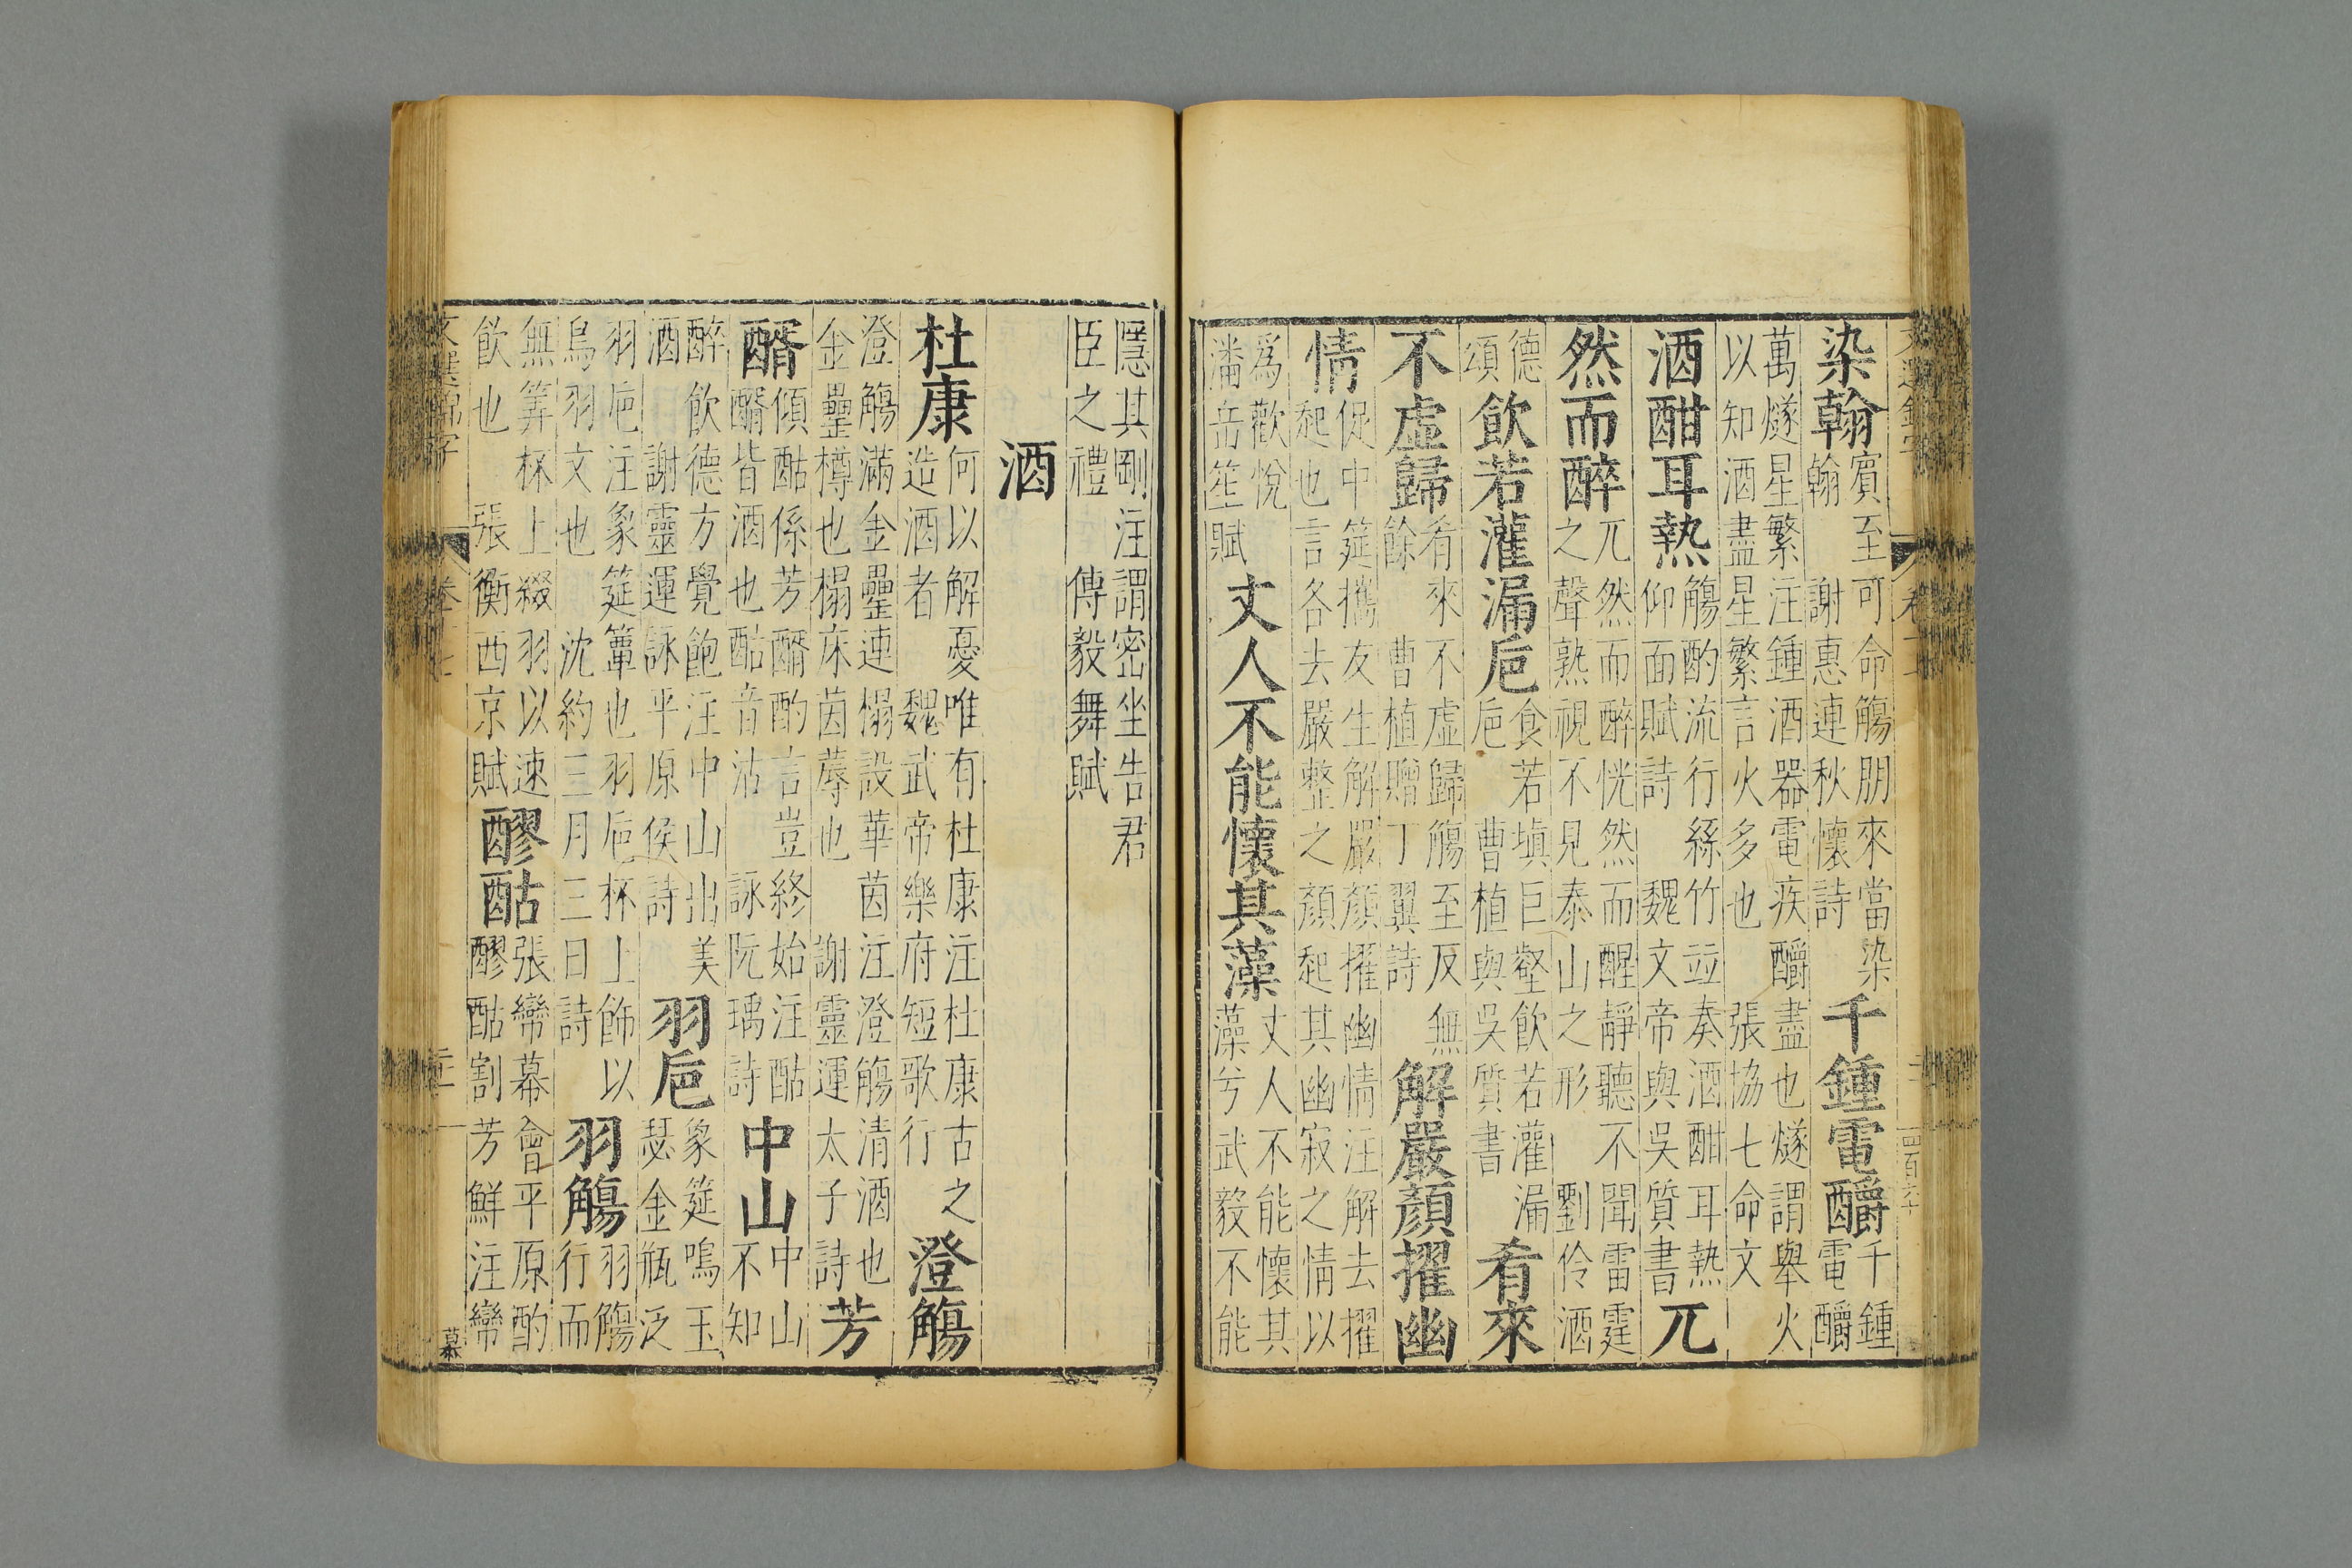 染翰賓至可命觴朋來當染翰謝惠連秋懷詩千鍾電釂千鍾電釂
萬燧星繁注鍾酒器電疾釂盡也燧謂舉火以知酒盡星繁言火多也張協七命文
酒酣耳熱觴酌流行絲竹竝奏酒酣耳熱仰面賦詩魏文帝與吳質書兀
然而醉兀然而醉恍然而醒靜聽不聞雷霆之聲熟視不見泰山之形劉伶酒
德頌飲若灌漏巵食若塡巨壑飲若灌漏巵曹植與吳質書肴來
不虛歸肴來不虛歸觴至反無餘曹植贈丁翼詩解嚴顏擢幽
情促中筵攜友生解嚴顏擢幽情注解去擢起也言各去嚴整之顏起其幽寂之情以
爲歡悅潘岳笙賦丈人不能懷其藻丈人不能懷其藻兮武毅不能
隱其剛注謂密坐告君臣之禮傅毅舞賦
酒
杜康何以解憂唯有杜康注杜康古之造酒者魏武帝樂府短歌行澄觴
澄觴滿金罍連榻設華茵注澄觴清酒也金罍樽也榻床茵蓐也謝靈運太子詩芳
醑傾酤係芳醑酌言豈終始注酤醑皆酒也酤音沽詠阮瑀詩中山中山不知
醉飲德方覺飽注中山出美酒謝靈運詠平原侯詩羽巵象筵鳴玉瑟金瓶泛
羽巵注象筵簟也羽巵杯上飾以鳥羽文也沈約三月三日詩羽觴羽觴行而
無筭杯上綴羽以速飲也張衡西京賦醪酤張幣幕會平原酌醪酤割芳鮮注幣
慕
四百六十